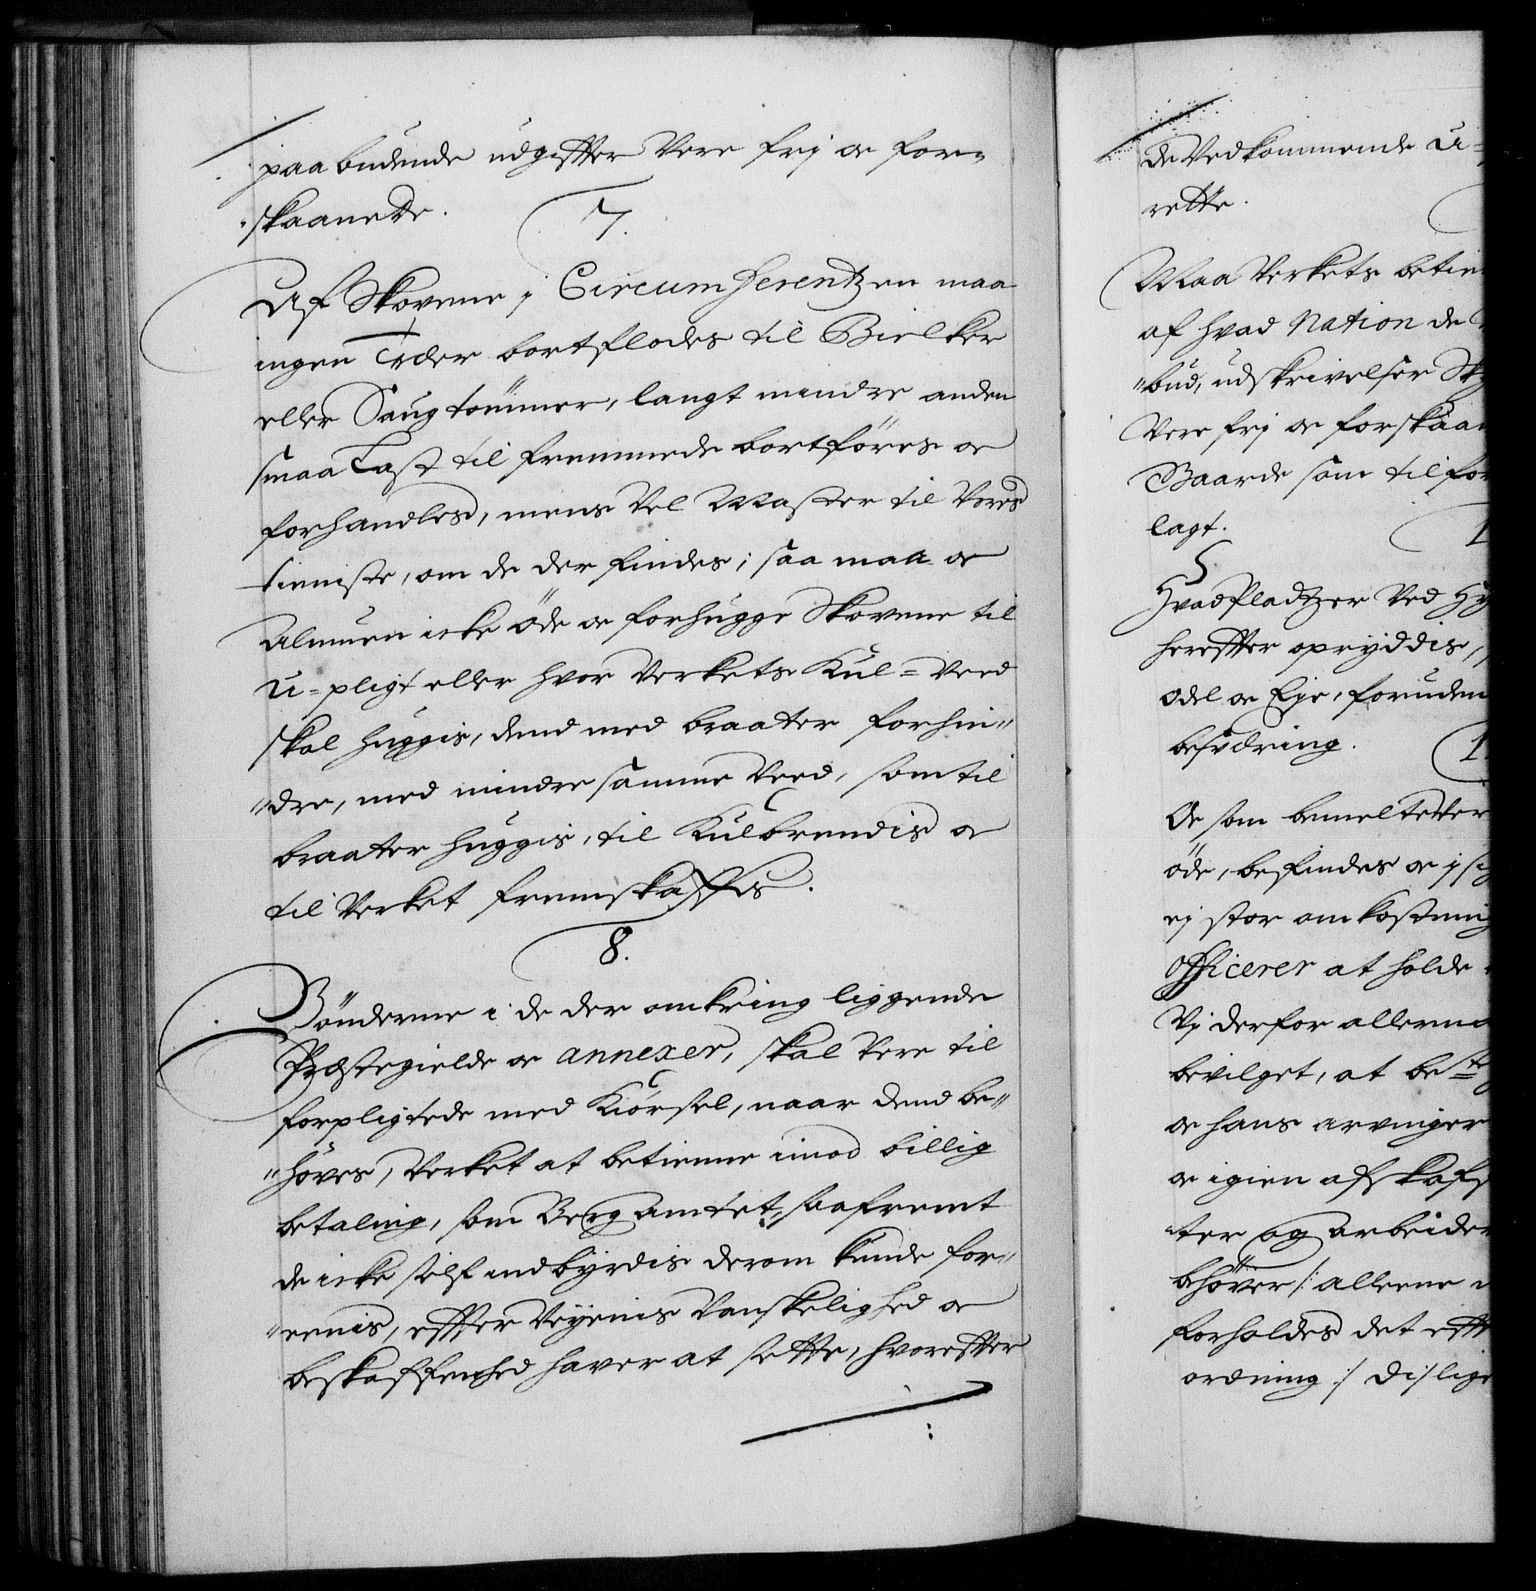 paabudende udgiffter Vere frj oc for=
skaanede.
7.
Af Skovene j Circumferentzen maa
ingen Tider bortflødes til Bielker
eller Saugtømmer, langt mindre anden
smaa Last til fremmede bortføres oc
forhandles, mens Vel Master til Vores
tieniste, om de der findes; saa maa oc
Almuen icke øde oc forhugge Skovene til
u=pligt eller hvor Verkets Kul=Veed
skal huggis, dend med braater forhin"
"dre, med mindre samme Veed, som til
braater huggis, til Kulbrendis oc
til Verket fremskaffes.
8.
Bønderne i de der omkring liggende
Præstegielde oc annexer, skal Vere til
forpligtede med Kiørsel, naar dend be"
"høves, Verket at betienne imod billig
betaling, som Bergamtet, saafremt
de icke self indbyrdis derom kunde for"
"eenis, effter Veyenis Vanskelighed oc
beskaffenhed haver at sette, hvoreffter
de Vedkommende u=
rette.
Maa Verkets betien
af hvad Nation de
"bud, udskrivelser
Vere frj oc forskaan
Baarde som til for
lagt.
Hvad Pladtzer Ved
hereffter opryddis,
odel oc Eje, foruden
besværing.
Oc som bemelte
øde, befindes oc j
ej stor omkostning
Officerer at holde
Vj derfor allerna
bevilget, at be.te
oc hans arvinger
oc igien afskaff
ter og arbeider
behøver /: alleene
forholdes det effte
ordning :/ dislige